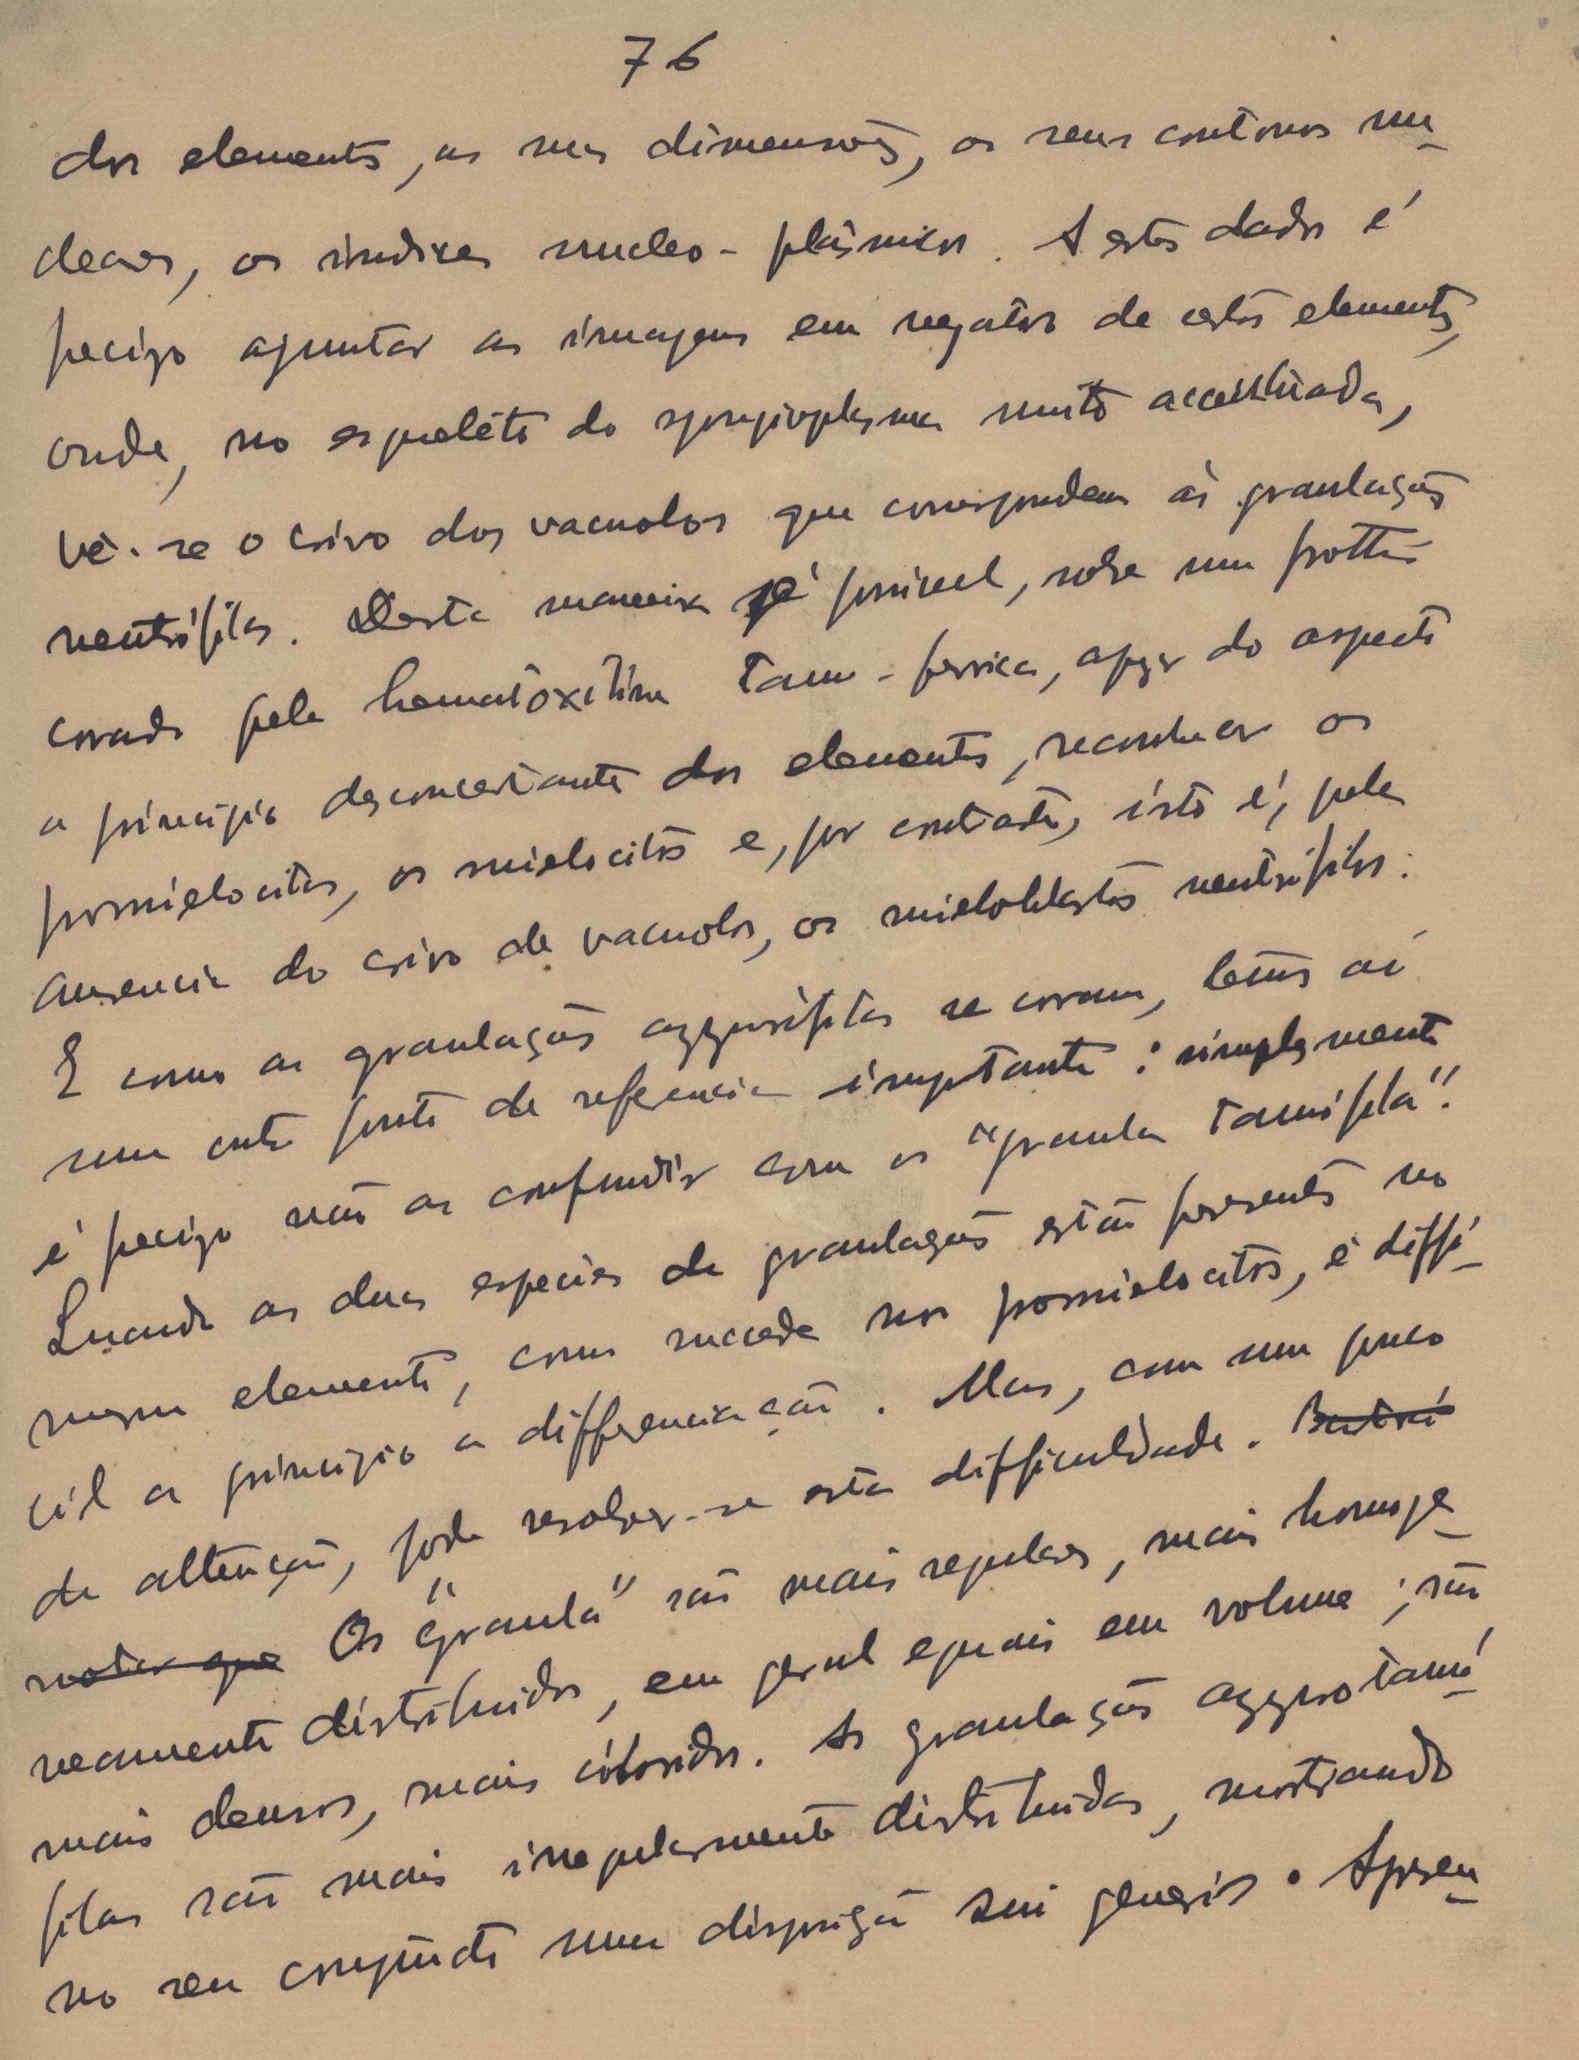 76
dos elementos, as suas dimensões, os seus contornos nu-
cleares, os indices nucleo-plásmicos. A estes dados é
preciso ajuntar as imagens em negativo de certos elementos,
onde, no esqueleto do spongioplasma muito accentuada,
vê-se o crivo dos vacuolos que correspondem ás granulações
neutrófilas. Desta maneira é possivel, sobre um frottis
corado pela hematoxilina tano-ferrica, apezar do aspecto
a principio desconcertante dos elementos, reconhecer os
promielocitos, os mielocitos e, por contraste, isto é, pela
ausencia do crivo de vacuolos, os mieloblastos neutrófilos.
E como as granulações azzurófilas se coram, temos aí
um outro ponto de referencia importante: simplesmente
é preciso não as confundir com os "granula tanófila".
Quando as duas especies de granulações estão presentes no
mesmo elemento, como succede nos promielocitos, é diffi-
cil a principio a differenciação. Mas, com um pouco
de attenção, pode resolver-se esta difficuldade. Bastará
notar que Os "granula" são mais regulares, mais homoge-
neamente distribuidos, em geral eguais em volume; são
mais densos, mais coloridos. As granulações azzurotanó-
filas são mais irregularmente distribuidas, mostrando
no seu conjuncto uma disposição sui generis. Apresen-